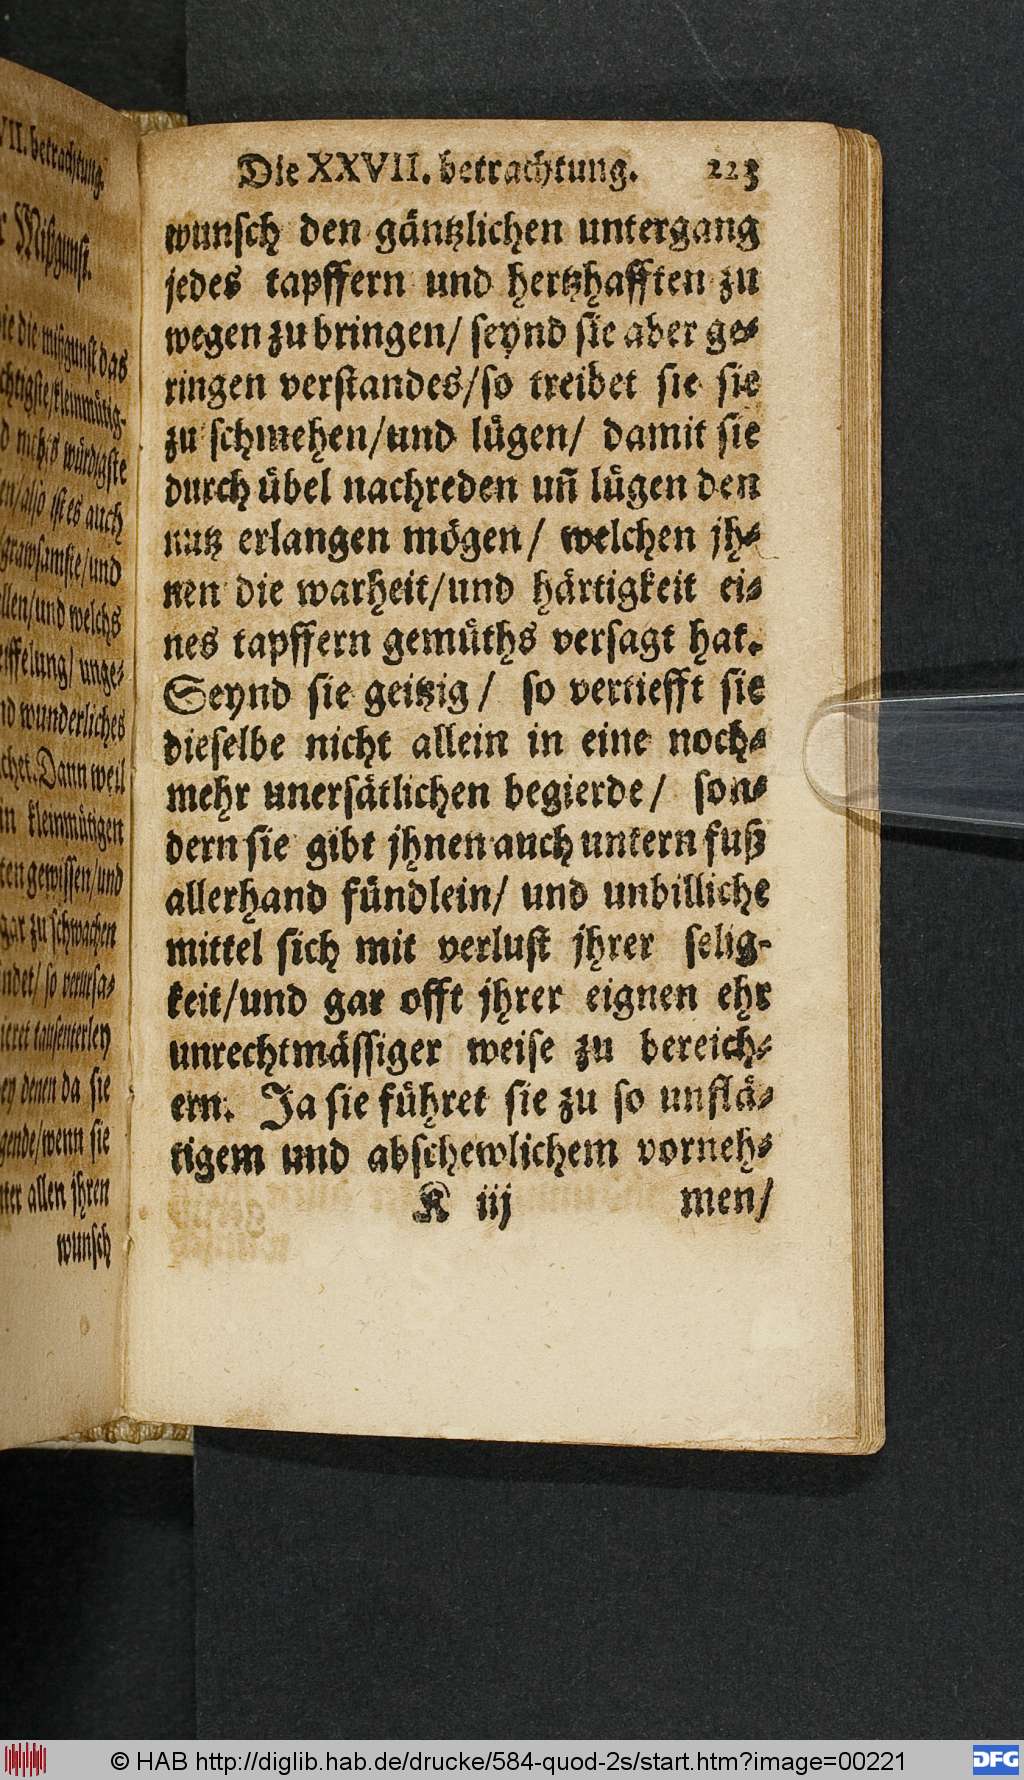 VII. betrachtung.
Mißgunst.
die mißgunst das
kleinmütig-
würdigste
also ist es auch
und welchs
unge-
wunderliches
Dann weil
kleinmütigen
gewissen/und
gar zu schwachen
so verursa-
tausenterley
denen da sie
wenn sie
allen jhren
wunsch
Die XXVII. betrachtung. 223
wunsch den gäntzlichen untergang
jedes tapffern und hertzhafften zu
wegen zu bringen/ seynd sie aber ge-
ringen verstandes/so treibet sie sie
zu schmehen/und lügen/ damit sie
durch übel nachreden uñ lügen den
nutz erlangen mögen/ welchen jh-
nen die warheit/und härtigkeit ei-
nes tapffern gemüths versagt hat.
Seynd sie geitzig/ so vertiefft sie
dieselbe nicht allein in eine noch-
mehr unersätlichen begierde/ son-
dern sie gibt jhnen auch untern fuß
allerhand fündlein/ und unbilliche
mittel sich mit verlust jhrer selig-
keit/und gar offt jhrer eignen ehr
unrechtmässiger weise zu bereich-
ern. Ja sie führet sie zu so unflä-
tigem und abschewlichem vorneh-
K iij men/
© HAB http://diglib.hab.de/drucke/584-quod-2s/start.htm?image=00221
DFG